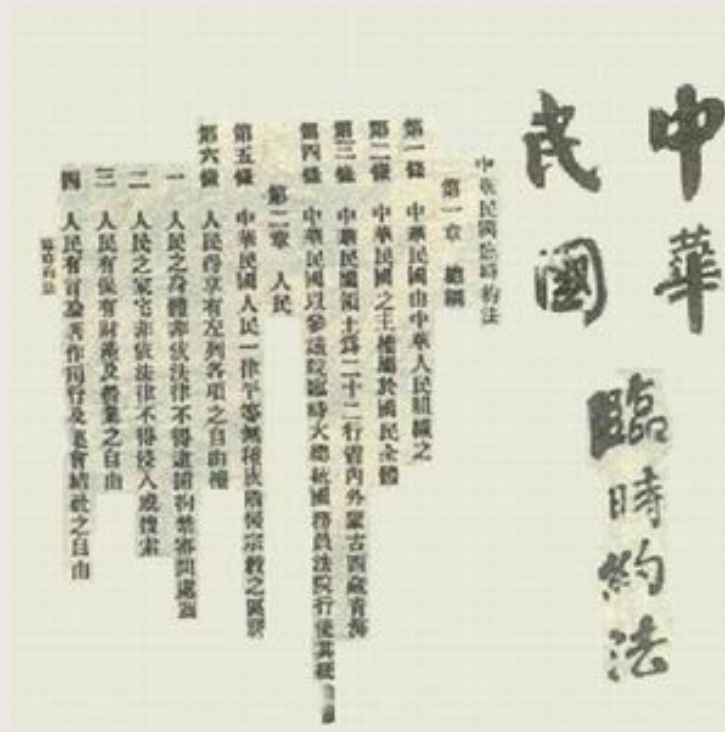 中華
民國
臨時約法
中華民國臨時約法
第一章 總綱
第一條 中華民國由中華人民組織之
第二條 中華民國之主權屬於國民全體
第三條 中華民國領土為二十二行省內外蒙古西藏青海
第四條 中華民國以參議院臨時大總統國務員法院行使其統
第二章 人民
第五條 中華民國人民一律平等無種族階級宗教之區別
第六條 人民得享有左列各項之自由權
一 人民之身體非依法律不得逮捕拘禁審問處罰
二 人民之家宅非依法律不得侵入或搜索
三 人民有保有財產及營業之自由
四 人民有言論著作刊行及集會結社之自由
臨時約法